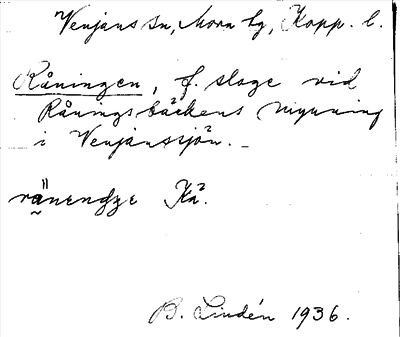 Venjans sn, Mora tg, Kopp. l.
Råningen, f. sloge vid
Råningsbäckens mynning
i Venjanssjön.
Kä².
B. Lindén 1936.